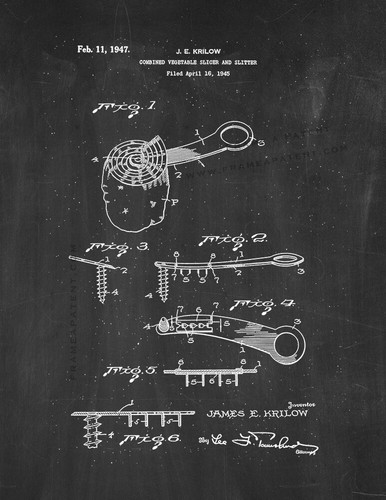 Feb. 11, 1947.
J. E. KRILOW
COMBINED VEGETABLE SLICER AND SLITTER
Filed April 16, 1945
Fig. 1
1
3
4
2
P
Fig. 3.
1
2
4
Fig. 2.
8
6
1
3
7 5 5 7
4
Fig. 4
6 7 8
4
5
1
3
Fig. 5.
8 6
5 5
1
5
4
Fig. 6.
Inventor
JAMES E. KRILOW
By
Attorney